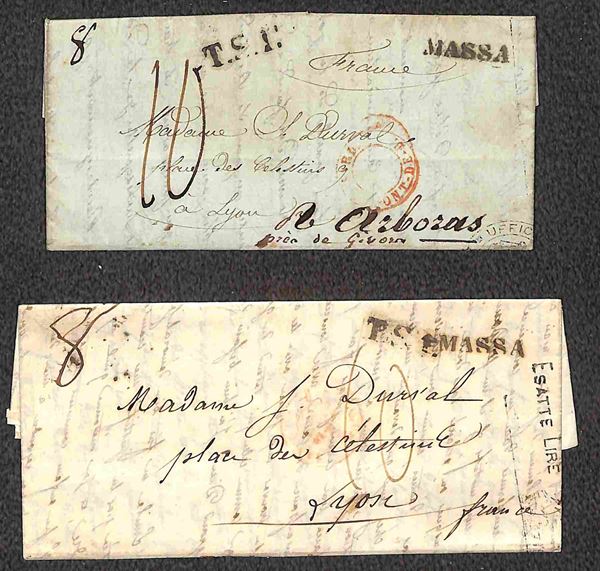 8
T.S.F.
MASSA
France
10
Madame
place des Celestins
à Lyon
Arboras
près de Givors
UFFIC
8
T.S.F.
MASSA
10
Madame J. Durval
place des Célestins
Lyon
france
ESATTE LIRE